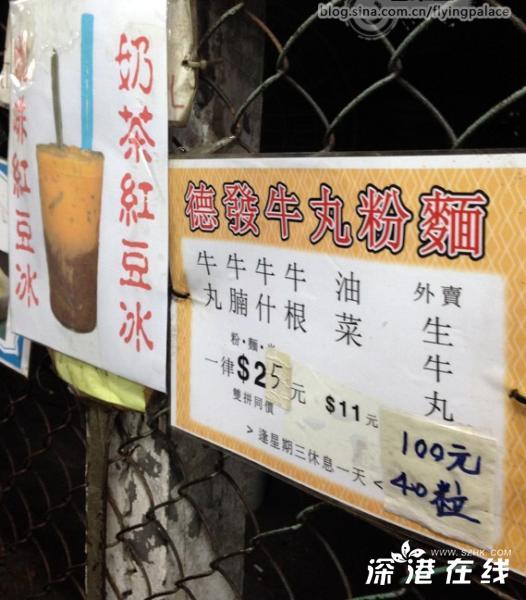 blog.sina.com.cn/flyingpalace
奶茶紅豆冰
紅豆冰
德發牛丸粉麵
牛丸
牛腩
牛什
牛根
油菜
外賣
生牛丸
粉·麵·
一律$25元
雙拼同價
$11元
100元
40粒
>逢星期三休息一天<
www.szhk.com
深港在线